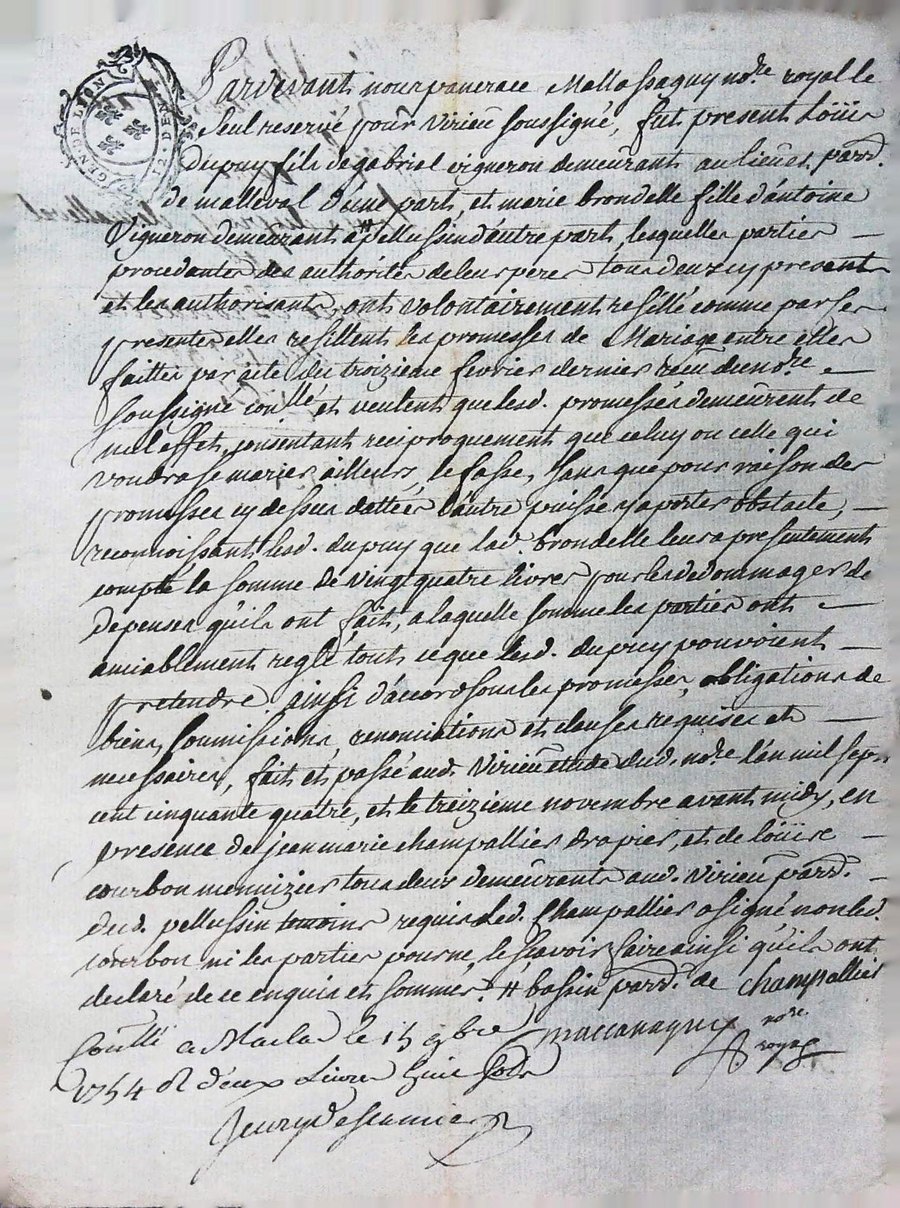 GEN DE LYON
2 S. DEN
Pardevant nous pancrace Mallassagny nore. royal le
seul reservé pour Virieu soussigné, fut present Loüis
Dupuy fils de gabriel vigneron demeurant au lieu et parr.
de malleval d'une part, et marie brondelle fille d'antoine
vigneron demeurant a # pellussin d'autre part, lesquelles parties
procedantes des authorités de leurs peres tous deux cy presents
et les authorisants, ont volontairement resillé comme par ses
presentes elles resillent les promesses de Mariage entre elles
faittes par acte du troizieme fevrier dernier receu du nore.
soussigné conllé et veulent que lesd. promesses demeurent de
nul effet, consentant reciproquement que celuy ou celle qui
voudra se marier ailleurs, le fasse, sans que pour raison des
promesses cy dessus dattées l'autre puisse y aporter obstacle,
reconnoissants lesd. dupuy que lad. brondelle leur a presentement
compté la somme de vingt quatre livres pour les dedommager de
depenses qu'ils ont fait, a laquelle somme les parties ont
amiablement reglé tout ce que lesd. dupuy pouvoient
pretendre ainsi d'accord sous les promesses, obligations de
biens, soumissions, renonciations et clauses requises et
necessaires, fait et passé aud. Virieu etude dud. nore l'an mil sept
cent cinquante quatre, et le treizieme novembre avant midy, en
presence de jean marie champallier drapier, et de loüis
courbon menuizier tous deux demeurants aud. Virieu parr.
dud. pellussin temoins requis led. Champallier a signé non led.
courbon ni les parties pour ne le scavoir faire ainsi qu'ils ont
declaré de ce enquis et sommés. # bassin parr. de champallier
Conllé a Maclas le 15 9bre
nore.
royal
1754 R deux Livres huit sols